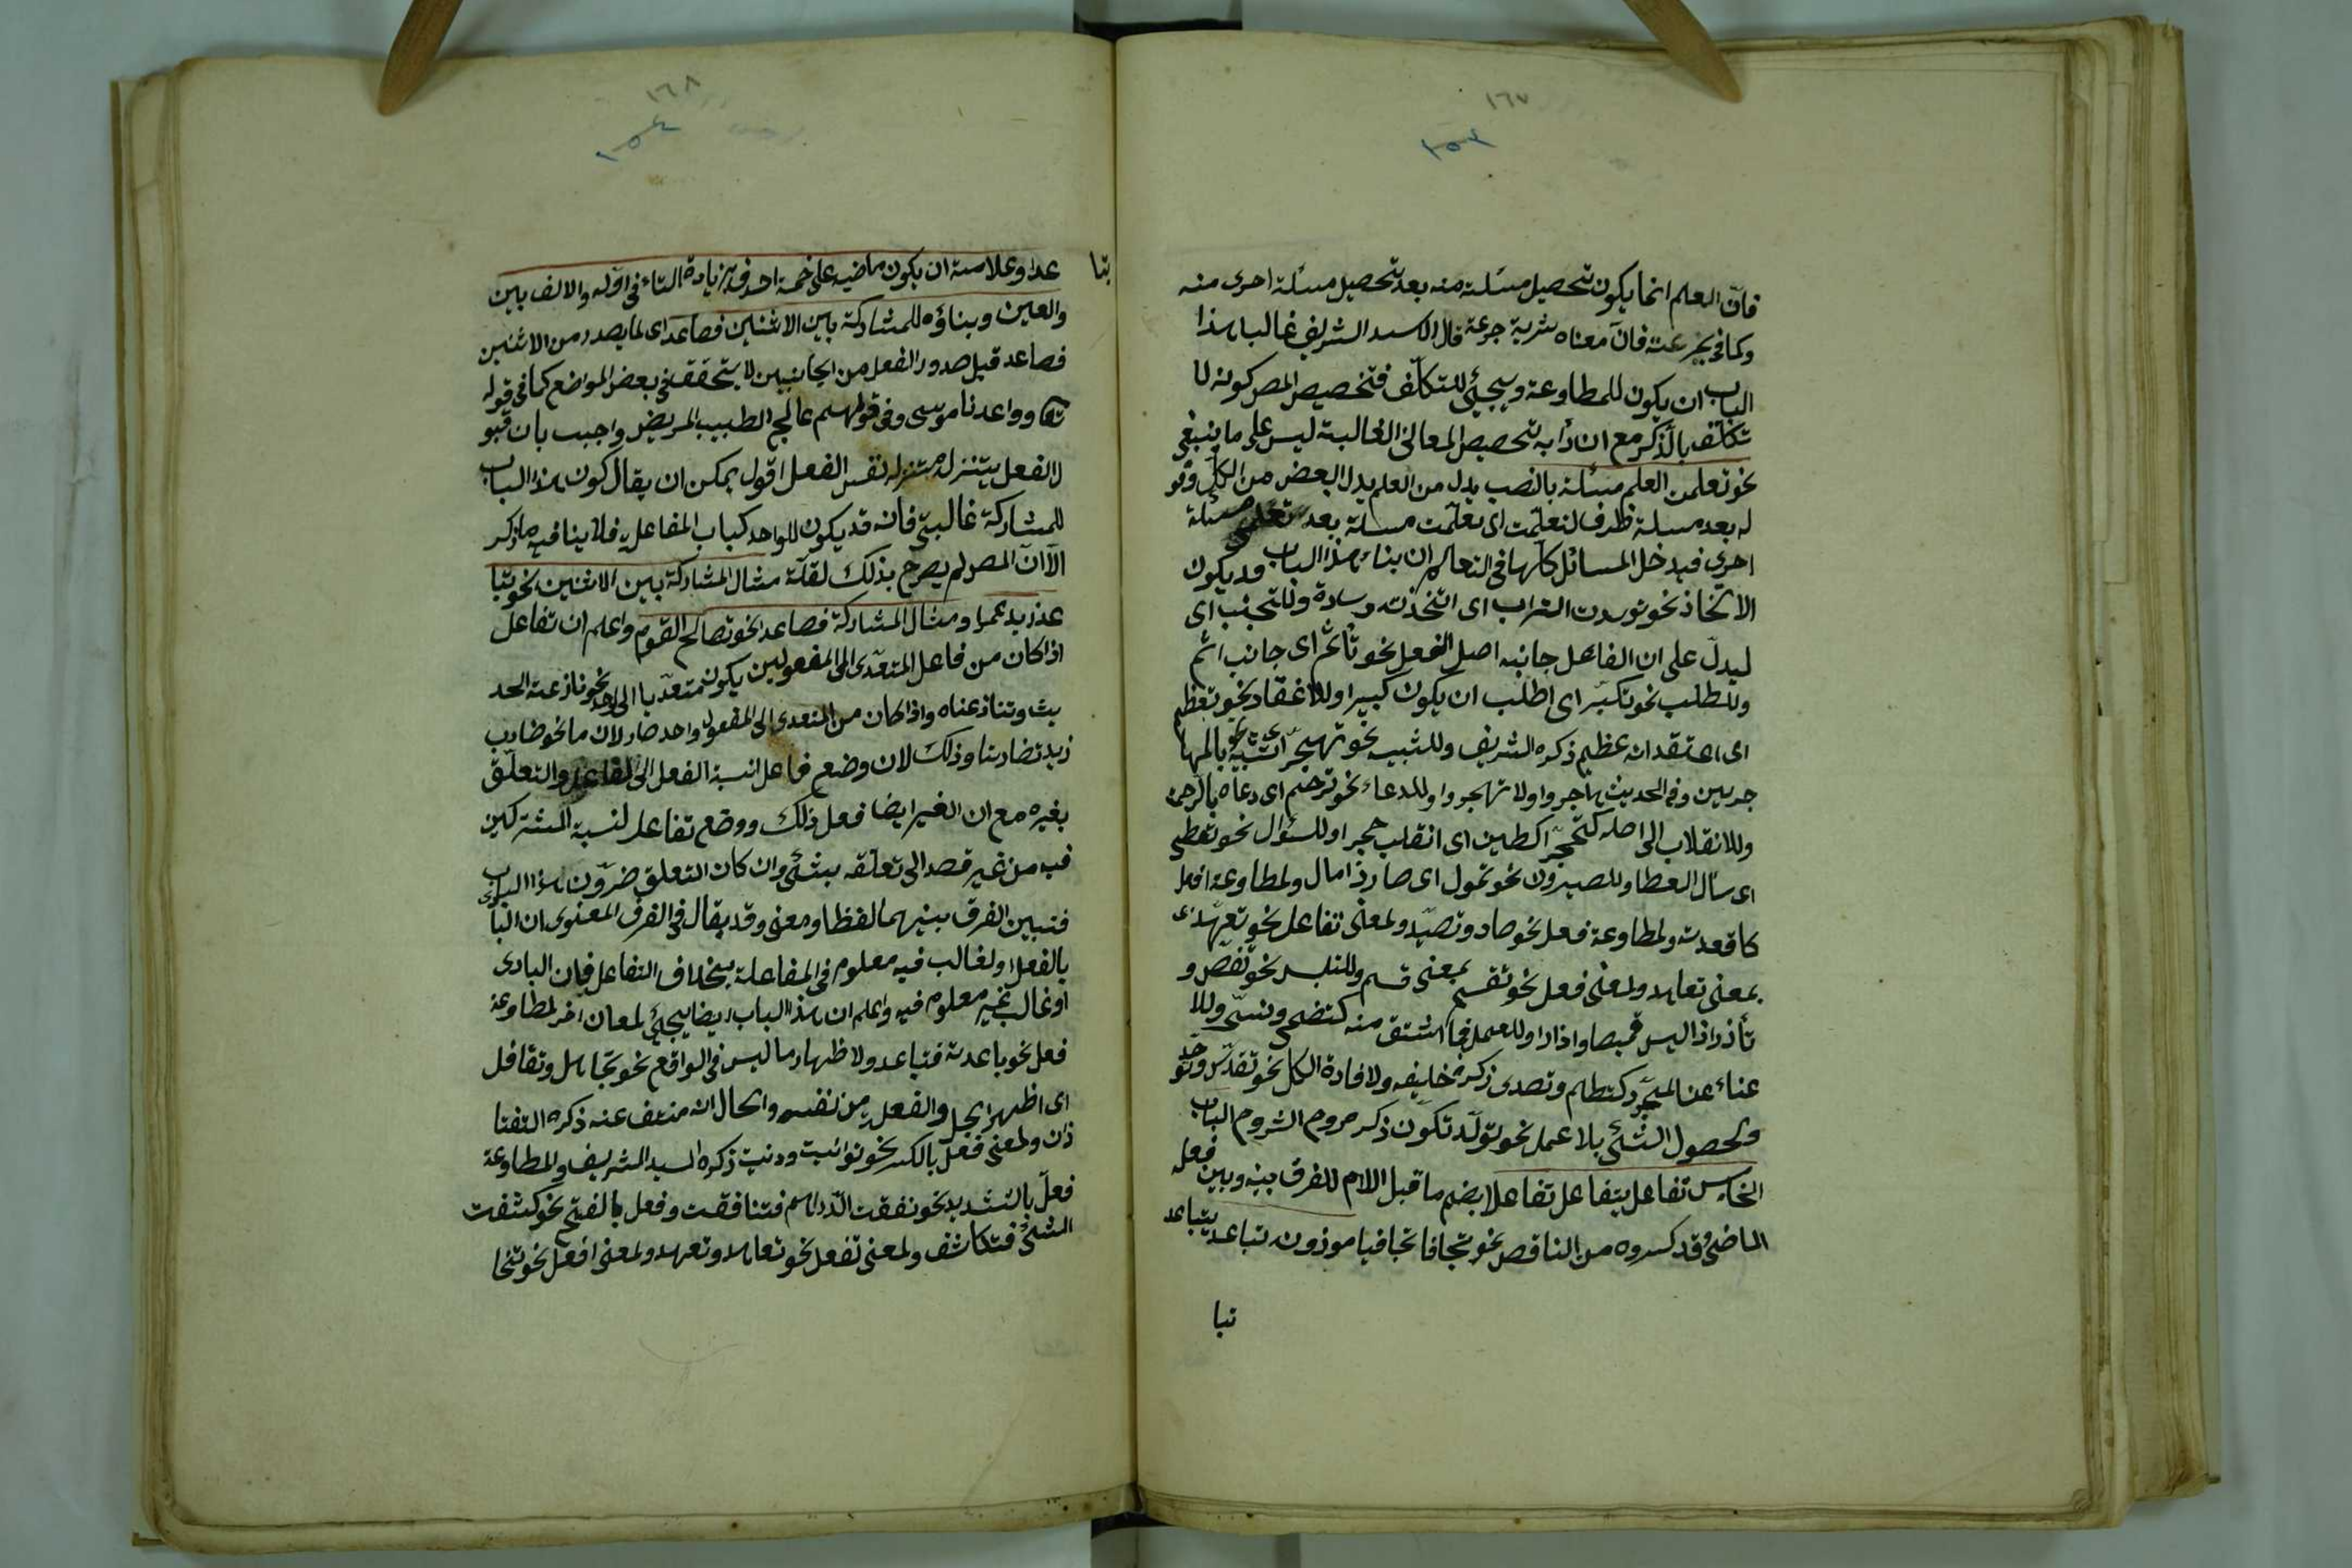 ١٦٧
١٥٣
فانّ العلم انما يكون تحصيل مسئلة منه بعد تحصيل مسئلة اخرى منه
وكما فى تجرعته فانّ معناه شربة جرعة قال السيد الشريف غالب هذا
الباب ان يكون للمطاوعة ويجيئ للتكلّف فتخصيص المصر كونه لا
تكلّف بالذكر مع ان دأبه تحصيص المعانى الغالبة ليس على ما ينبغى
نحو تعلمن العلم مسئلة بالنصب بدل من العلم بدل البعض من الكل وقو
له بعد مسئلة ظرف لتعلّمت اى تعلّمت مسئلة بعد تعلم مسئلة
اخرى فيدخل المسائل كلّها فى التعالم ان بناء هذا الباب قد يكون
الاتّخاذ نحو توسدت التراب اى اتخذته وسادة وللتجنب اى
ليدلّ على ان الفاعل جانبه اصل الفعل نحو تأثم اى جانب اثم
وللطلب نحو تكبّر اى اطلب ان يكون كبيرا وللاعتقاد نحو تعظم
اى اعتقد انه عظيم ذكره الشريف وللشبيه نحو تهجّر اى تشبّه بالمها
جرين وفى الحديث هاجروا ولا تهجروا وللدعاء نحو ترحم اى دعاه بالرحمة
وللانقلاب الى اصله كتحجّر اكطين اى انقلب حجرا وللسئوال نحو تعطى
اى سأل العطا وللصيرون نحو تمول اى صار ذا مال ولمطاوعة افعل
كاقعدته ولمطاوعة فعل نحو صاد وتصيّد ولمعنى تفاعل نحو تعهّد
بمعنى تعاهد ولمعنى فعل نحو تقسم بمعنى قسم وللتلبس نحو تقمص و
تأذر اذا لبس قميصا واذارا وللعمل فيما اشتق منه كتضحى وتسحّر وللا
غناء عن المجرّد كتطلم وتصدى ذكره خليفه ولافادة الكل نحو تقدّس وتوحّد
ولحصول الشئ بلا عمل نحو تولّد تكوّن ذكره روح الشروح الباب
الخامس تفاعل يتفاعل تفاعلا بضم ما قبل اللام للفرق بينه وبين فعله
الماضى وقد كسروه من الناقص نحو تجافا تجافيا موزونه تباعد يتباعد
تبا
١٦٨
١٥٤
تبا
عدا وعلامته ان يكون ماضيه على خمسة احرف بزيادة التاء فى اوّله والالف بين
والعين وبناؤه للمشاركة بين الاثنين فصاعدا اى لما يصدر من الاثنين
فصاعد قيل صدور الفعل من الجانبين لا يتحقق فى بعض المواضع كما فى قوله
تعا وواعدنا موسى وفى قولهم عالج الطبيب المريض واجيب بان قبو
لا لفعل يتنزل منزله نفس الفعل اقول يمكن ان يقال كون هذا الباب
للمشاركة غالبىّ فانه قد يكون للواحد كباب المفاعلة فلا ينافيه ما ذكر
الا انّ المصر لم يصرح بذلك لقلّة مثال المشاركة بين الاثنين نحو تبا
عد زيد عمرا ومثال المشاركة فصاعدا نحو تصالح القوم واعلم ان تفاعل
اذا كان من فاعل المتعدّى الى المفعولين يكون متعدّيا الى احد نحو نازعته الحد
يث وتنازعناه واذا كان من المتعدى الى المفعول واحد صار لازما نحو ضارب
زيد تضاربنا وذلك لان وضع فاعل لنسبة الفعل الى الفاعل والتعلّق
بغيره مع ان الغير ايضا فعل ذلك ووضع تفاعل لنسبة المشتركين
فيه من غير قصد الى تعلّقه بشئ وان كان التعلق ضرّون هذا الباب
فتبين الفرق بينهما لفظا ومعنى وقد يقال فى الفرق المعنوى ان البادى
بالفعل اولغالب فيه معلوم فى المفاعلة بخلاف التفاعل فان البادى
اوغالب غير معلوم فيه واعلم ان هذا الباب ايضا يجئ لمعان اخر لمطاوعة
فعل نحو باعدته فتباعد ولاظهار ما ليس فى الواقع نحو تجاهل وتقافل
اى اظهر الجهل والفعل من نفسه والحال انه منتف عنه ذكره التفتا
ذان ولمعنى فعل بالكسر نحو توانيت ونيت ذكره السيد الشريف ولمطاوعة
فعلّ بالتشديد نحو نفقت الدّراهم فتنافقت وفعل بالفتح نحو كشفت
الشئ فتكاشف ولمعنى تفعل نحو تعاهد وتعهد ولمعنى افعل نحو تخا